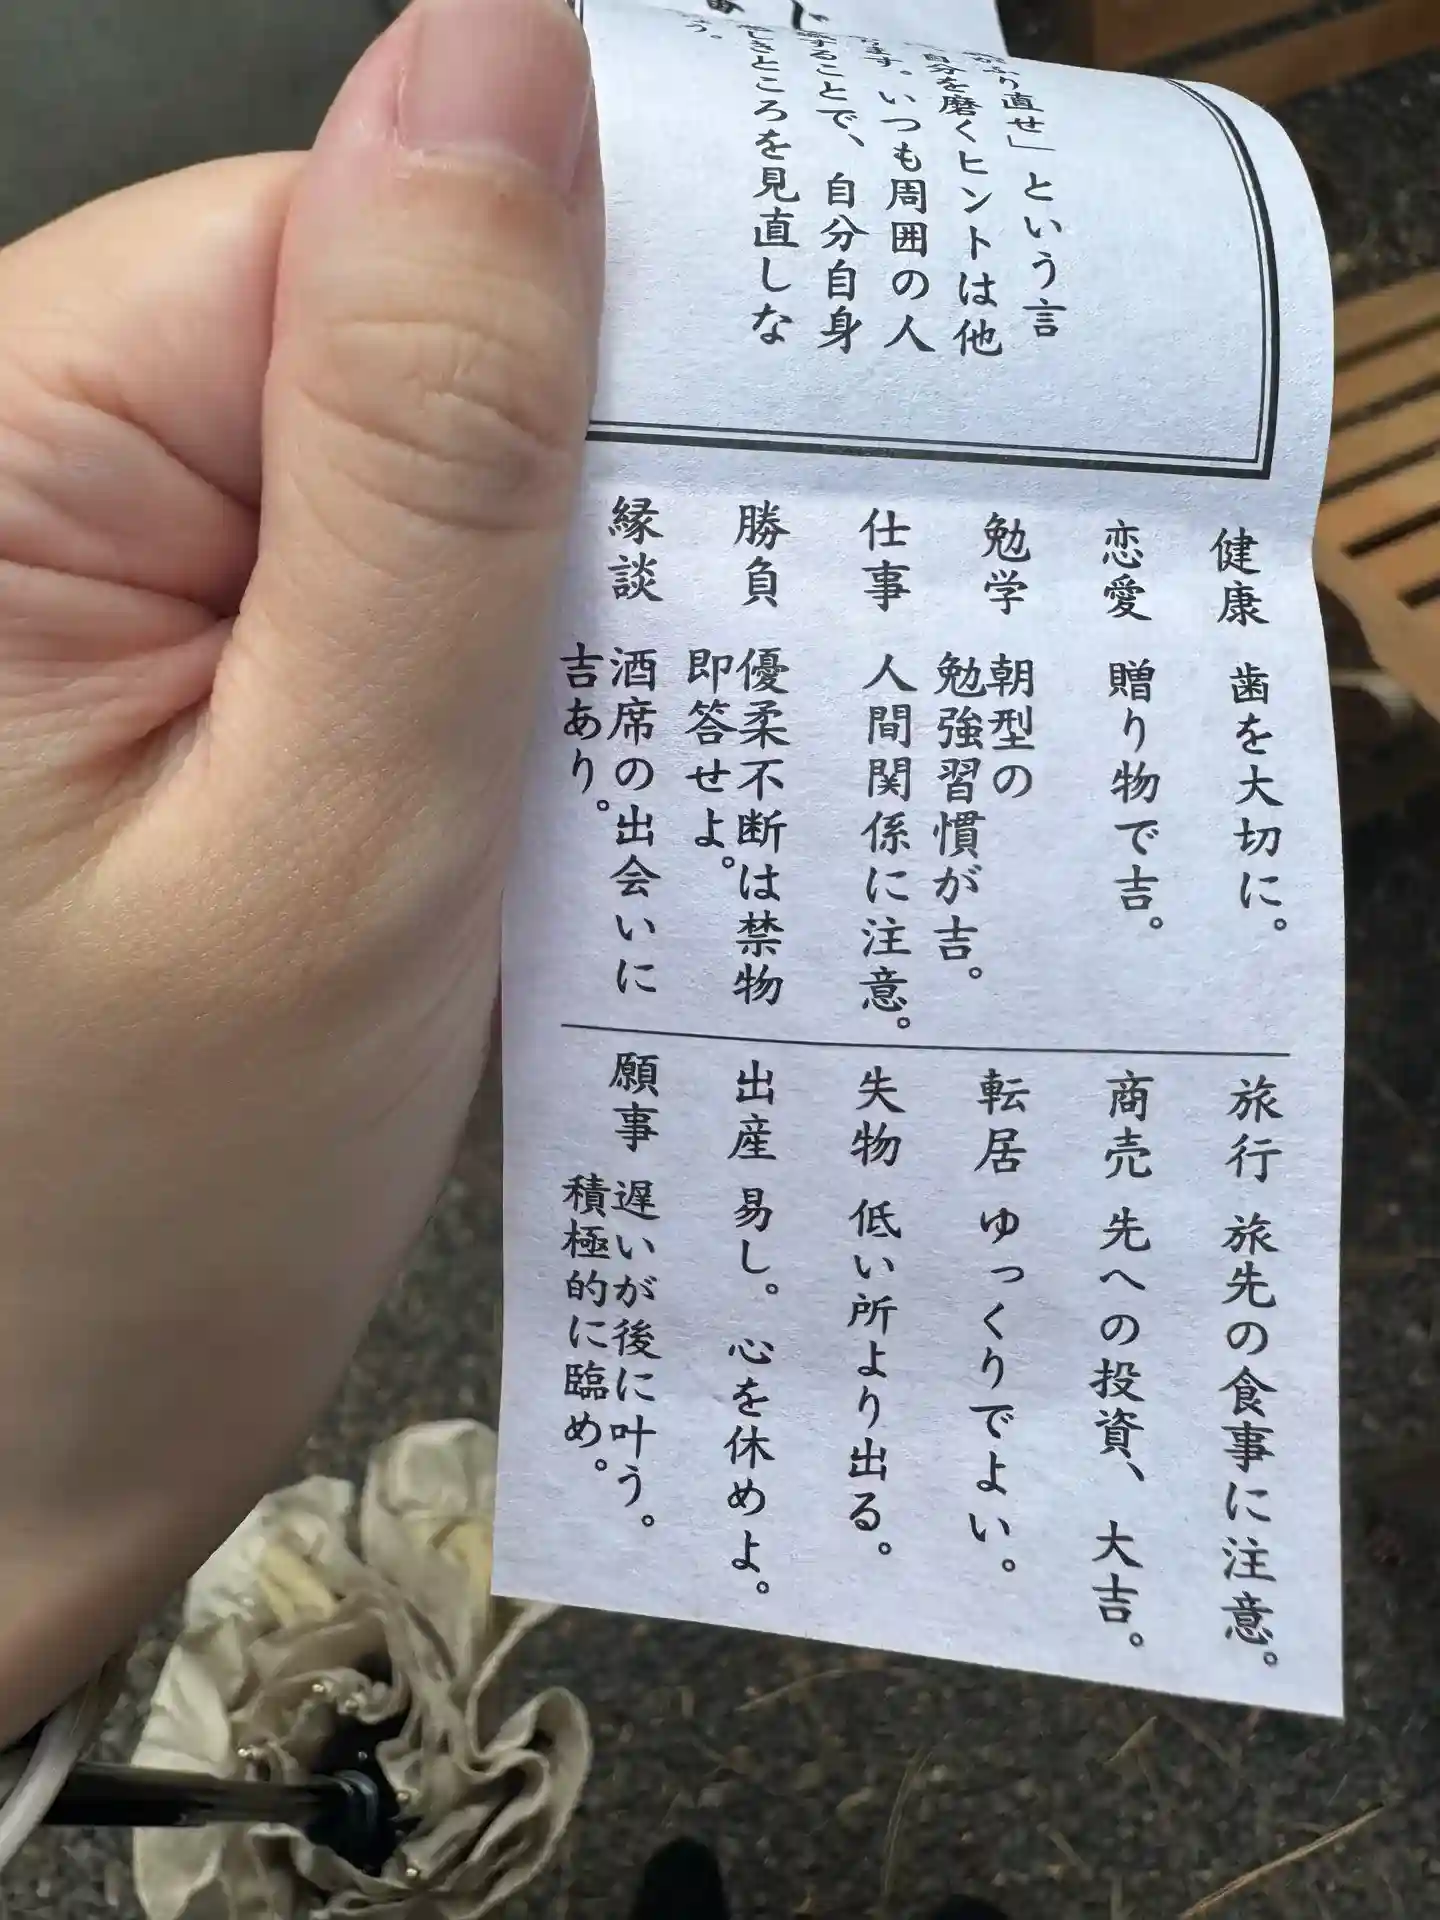 直せ」という言
自分を磨くヒントは他
ます。いつも周囲の人
することで、自分自身
しきところを見直しな
う。
健康 歯を大切に。
恋愛 贈り物で吉。
勉学 朝型の
勉強習慣が吉。
仕事 人間関係に注意。
勝負 優柔不断は禁物
即答せよ。
縁談 酒席の出会いに
吉あり。
旅行 旅先の食事に注意。
商売 先への投資、大吉。
転居 ゆっくりでよい。
失物 低い所より出る。
出産 易し。心を休めよ。
願事 遅いが後に叶う。
積極的に臨め。